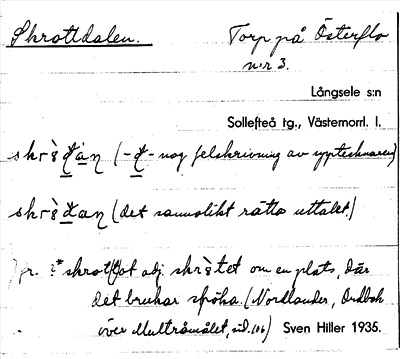 Skrottdalen. Torp på Österflo
n:r 3.
Långsele s:n
Sollefteå tg., Västernorrl. l.
(-đ- nog felskrivning av upptecknaren)
(det sannolikt rätta uttalet)
Jfr. adj. om en plats, där
det brukar spöka. (Nordlander, Ordbok
över Multråmålet, sid. 106) Sven Hiller 1935.